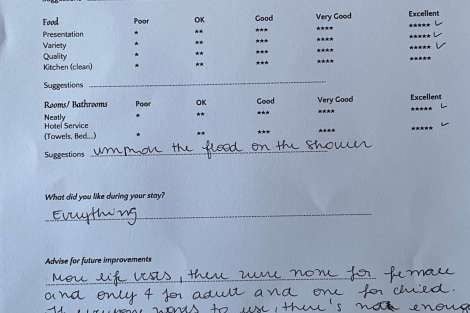 Food Poor OK Good Very Good Excellent
Presentation * ** *** **** ***** ✓
Variety * ** *** **** ***** ✓
Quality * ** *** **** ***** ✓
Kitchen (clean) * ** *** **** *****
Suggestions
Rooms/ Bathrooms Poor OK Good Very Good Excellent
Neatly * ** *** **** ***** ✓
Hotel Service
(Towels, Bed...) * ** *** **** ***** ✓
Suggestions the flood on the shower
What did you like during your stay?
Everything
Advise for future improvements
More life vests, there were none for female
and only 4 for adult and one for child.
If everyone wants to use, there's not enough